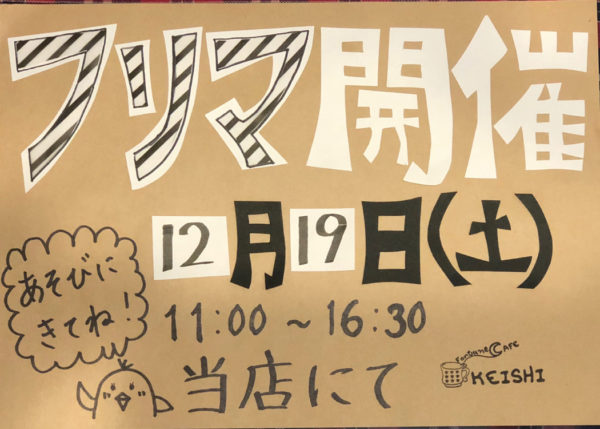 フリマ開催
12月19日(土)
あそびに
きてね!
11:00～16:30
当店にて
Fortune CAFE
KEISHI